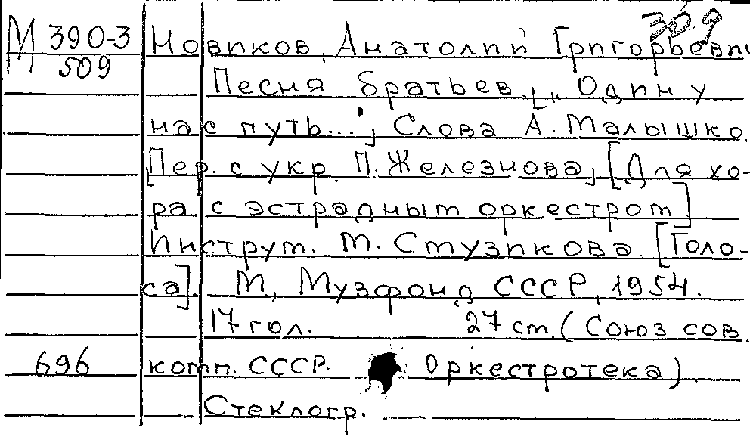 309
М 390-3
509
Новиков, Анатолий Григорьевич
Песня братьев. [„Один у
нас путь..."] Слова А. Малышко.
[Пер. с укр. П. Железнова] [Для хо-
ра с эстрадным оркестром]
Инструм. М. Стузикова. [Голо-
са]. М., Музфонд СССР, 1954.
17 гол. 27 cm. (Союз сов.
696 комп. СССР. Оркестротека)
Стеклогр.